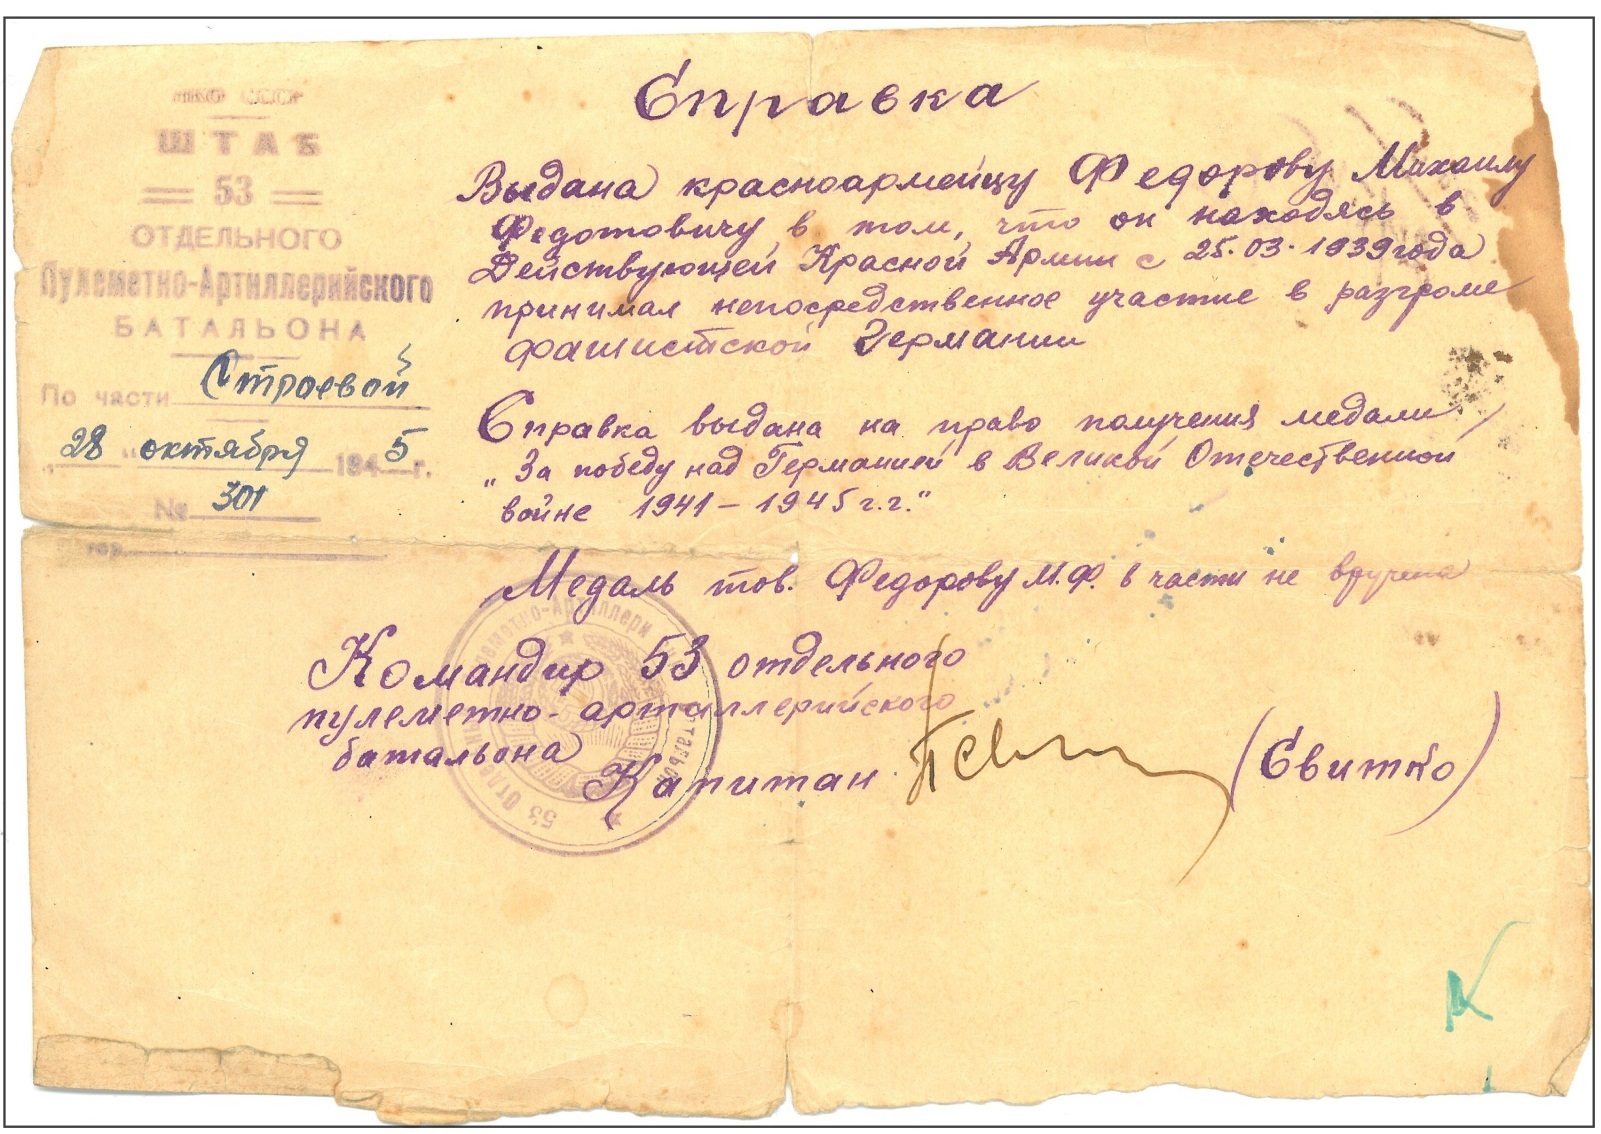 НКО СССР
ШТАБ
53
ОТДЕЛЬНОГО
Пулеметно-Артиллерийского
БАТАЛЬОНА
По части Строевой
„28“ октября 1945 г.
№ 301
гор.
Справка
Выдана красноармейцу Федорову Михаилу
Федотовичу в том, что он находясь в
Действующей Красной Армии с 25.03.1939 года
принимал непосредственное участие в разгроме
фашистской Германии
Справка выдана на право получения медали
„За победу над Германией в Великой Отечественной
войне 1941–1945 г.г."
Медаль тов. Федорову М.Ф. в части не вручена
Командир 53 отдельного
пулеметно-артиллерийского
батальона
Капитан (Свитко)
53 Отдел